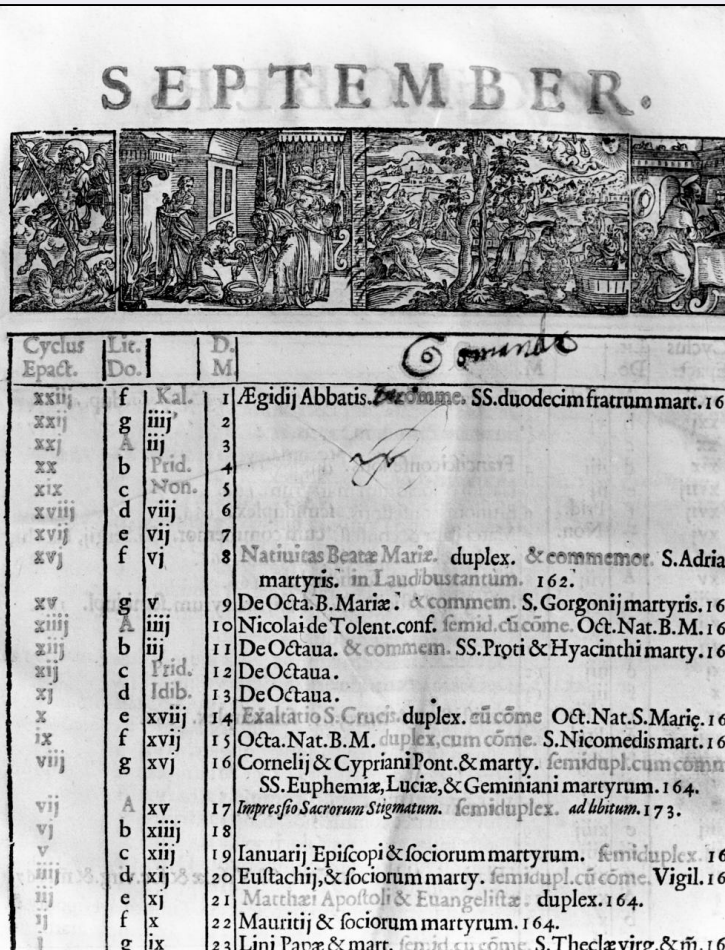 SEPTEMBER.
Cyclus Lit. D.
Epact. Do. M.
xxiij f Kal. 1 Ægidij Abbatis. comme. SS.duodecim fratrum mart. 16
xxij g iiij 2
xxj A iij 3
xx b Prid. 4
xix c Non. 5
xviij d viij 6
xvij e vij 7
xvj f vj 8 Natiuitas Beatæ Mariæ. duplex. & commemor. S.Adria
martyris. in Laudibus tantum. 162.
xv g v 9 De Octa.B.Mariæ. & commem. S.Gorgonij martyris. 16
xiiij A iiij 10 Nicolai de Tolent.conf. semid.cū cōme. Oct.Nat.B.M. 16
xiij b iij 11 De Octaua. & commem. SS.Proti & Hyacinthi marty. 16
xij c Prid. 12 De Octaua.
xj d Idib. 13 De Octaua.
x e xviij 14 Exaltatio S.Crucis. duplex. cū cōme Oct.Nat.S.Marię. 16
ix f xvij 15 Octa.Nat.B.M. duplex,cum cōme. S.Nicomedis mart. 16
viij g xvj 16 Cornelij & Cypriani Pont.& marty. semidupl.cum comm
SS.Euphemiæ,Luciæ,& Geminiani martyrum. 164.
vij A xv 17 Impressio Sacrorum Stigmatum. semiduplex. ad libitum. 173.
vj b xiiij 18
v c xiij 19 Ianuarij Episcopi & sociorum martyrum. semiduplex. 16
iiij d xij 20 Eustachij,& sociorum marty. semidupl.cū cōme. Vigil. 16
iij e xj 21 Matthæi Apostoli & Euangelistæ. duplex. 164.
ij f x 22 Mauritij & sociorum martyrum. 164.
g ix 23 Lini Papæ & mart. semid cu cōme. S.Theclæ virg.& m̄. 16